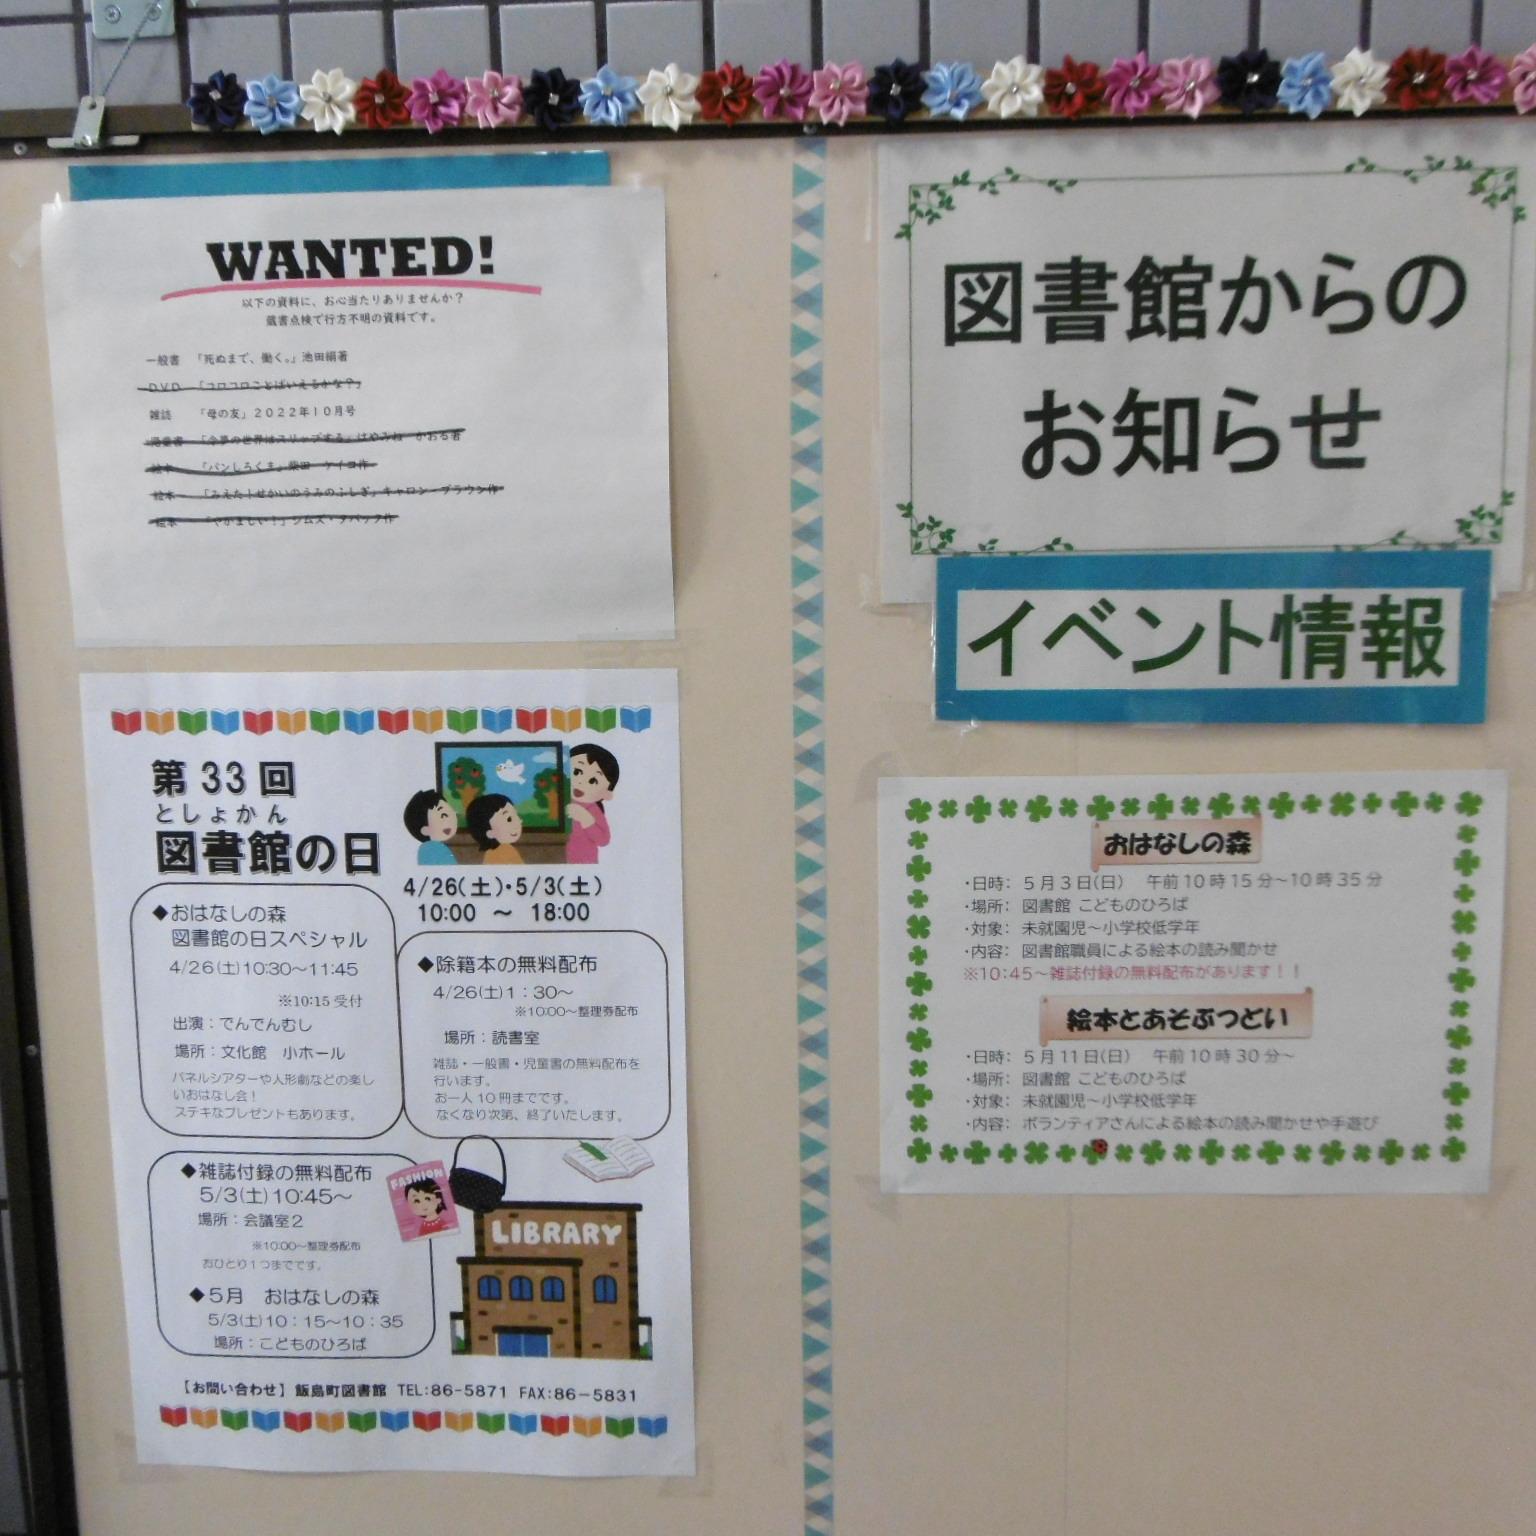 WANTED!
以下の資料に、お心当たりありませんか？
蔵書点検で行方不明の資料です。
一般書 「死ぬまで、働く。」池田絹著
DVD 「コロコロことばいえるかな？」
雑誌 「母の友」２０２２年１０月号
児童書 はやみね かおる著
絵本 「パンしろくま」柴田 ケイコ作
絵本 「みえた！せかいのうみのふしぎ」キャロン・ブラウン作
絵本 「やかましい！」シムズ・タバック作
図書館からの
お知らせ
イベント情報
第 33 回
としょかん
図書館の日
4/26(土)・5/3(土)
10:00 ～ 18:00
◆おはなしの森
図書館の日スペシャル
4/26(土)10:30～11:45
※10:15 受付
出演：でんでんむし
場所：文化館 小ホール
パネルシアターや人形劇などの楽し
いおはなし会！
ステキなプレゼントもあります。
◆除籍本の無料配布
4/26(土)1：30～
※10:00～整理券配布
場所：読書室
雑誌・一般書・児童書の無料配布を
行います。
お一人 10 冊までです。
なくなり次第、終了いたします。
◆雑誌付録の無料配布
5/3(土)10:45～
場所：会議室２
※10:00～整理券配布
おひとり１つまでです。
◆５月 おはなしの森
5/3(土)10：15～10：35
場所：こどものひろば
FASHION
LIBRARY
【お問い合わせ】飯島町図書館 TEL:86-5871 FAX:86－5831
おはなしの森
・日時： ５月３日(日) 午前10時15分～10時35分
・場所： 図書館 こどものひろば
・対象： 未就園児～小学校低学年
・内容： 図書館職員による絵本の読み聞かせ
※10:45～雑誌付録の無料配布があります！！
絵本とあそぶつどい
・日時： ５月11日(日) 午前10時30分～
・場所： 図書館 こどものひろば
・対象： 未就園児～小学校低学年
・内容： ボランティアさんによる絵本の読み聞かせや手遊び